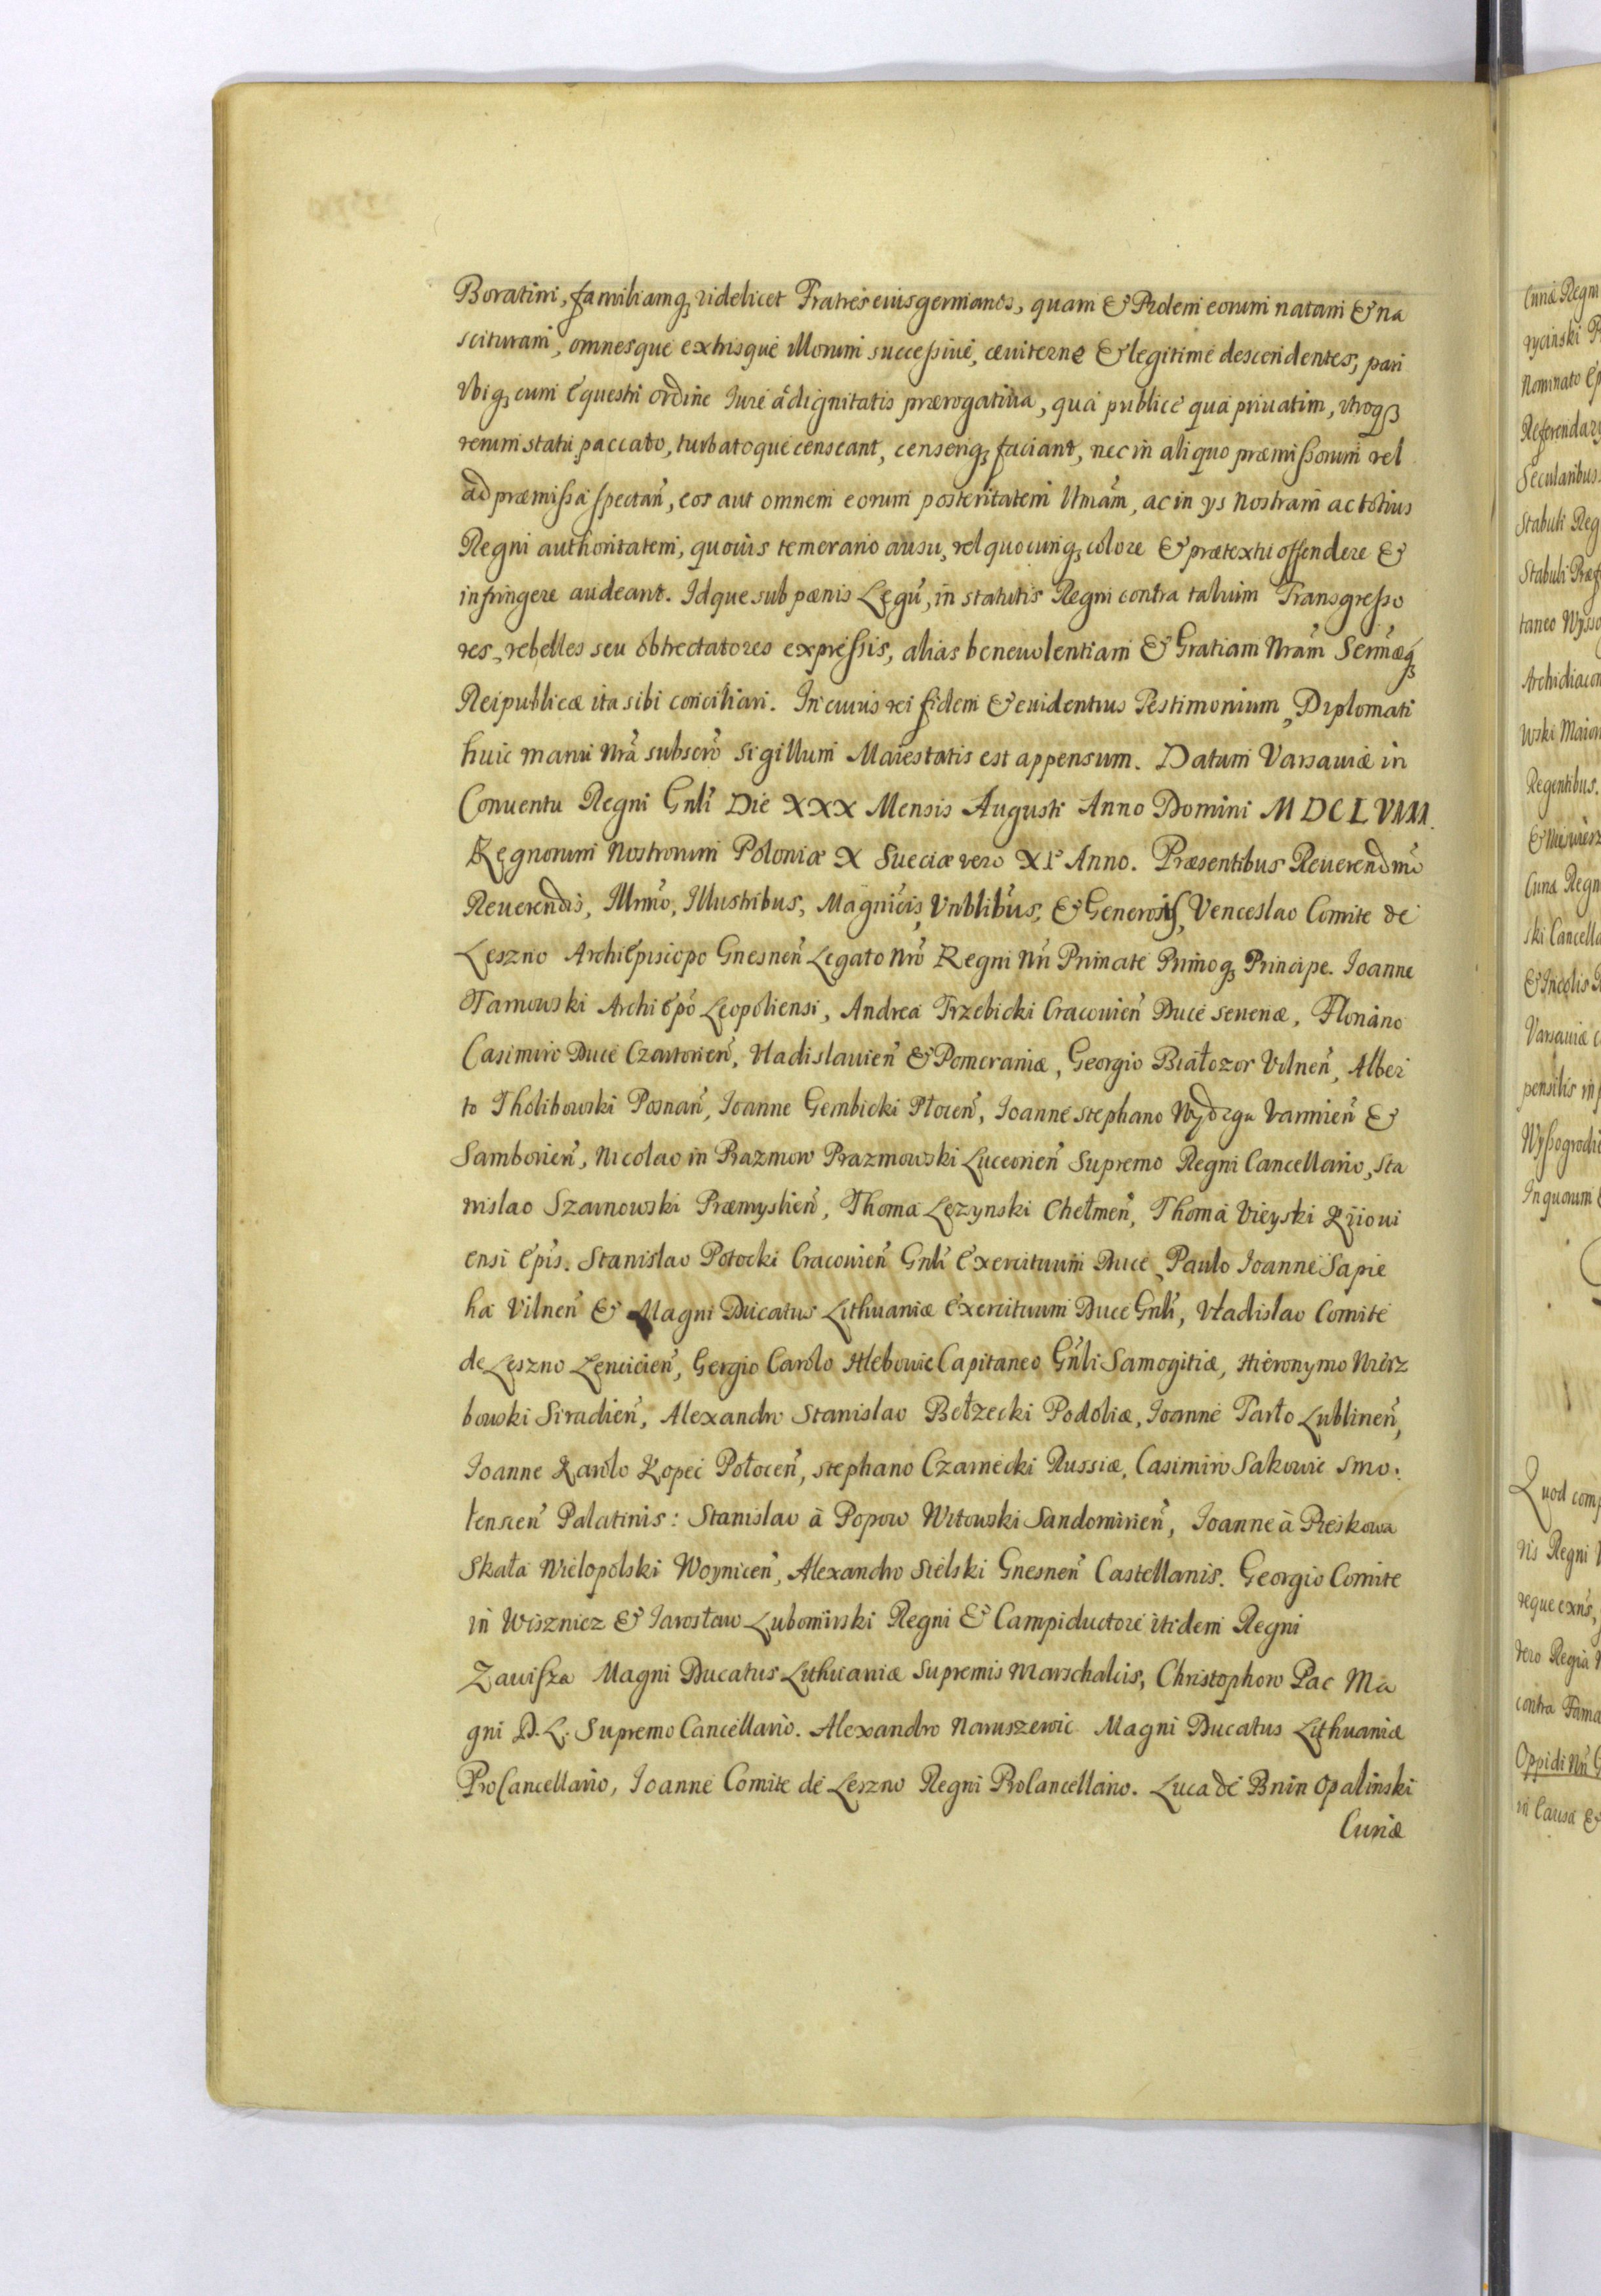 Boratini, familiamq; videlicet Fratres eius germanos, quam & Prolem eorum natam & na
scituram, omnesque ex hisque illorum successive, æviterne & legitime descendentes, pari
vbiq; cum Equestri ordine Iure ac dignitatis prærogativa, qua publice qua privatim, vtroq;
rerum statu paccato, turbatoque censeant, censeriq; faciant, nec in aliquo præmissorum vel
ad præmissa spectan̄, eos aut omnem eorum posteritatem Ummam, ac in ys Nostram ac totius
Regni authoritatem, quovis temerario ausu, vel quocunq; colore & prætextu offendere &
infringere audeant. Idque sub pœnis Legū, in statutis Regni contra talium Transgresso
res, rebelles seu obtrectatores expressis, alias benevolentiam & Gratiam Nrām Sermæq;
Reipublicæ ita sibi conciliari. In cuius rei fidem & evidentius Testimonium, Diplomati
huic manu Nrā subscrō sigillum Maiestatis est appensum. Datum Varsaviæ in
Conventu Regni Gnli Die XXX Mensis Augusti Anno Domini MDCLVIII.
Regnorum Nostrorum Poloniæ X Sueciæ vero XI Anno. Præsentibus Reverendmō
Reverendis, Illrmo, Illustribus, Magnicis, Vnblibus, & Generosis, Venceslao Comite de
Leszno Archiepiscopo Gnesnen̄ Legato Nrō Regni Nri Primate Primoq; Principe. Ioanne
Tarnowski Archiepō Leopoliensi, Andrea Trzebicki Cracovien̄ Duce Severiæ, Floriano
Casimiro Duce Czartorien̄, Vladislavien̄ & Pomeraniæ, Georgio Białozor Vilnen̄, Alber
to Tholibowski Posnan̄, Ioanne Gembicki Płocen̄, Ioanne Stephano Wydzga Varmien̄ &
Samborien̄, Nicolao in Prazmow Prazmowski Luceorien̄ Supremo Regni Cancellario, Sta
nislao Szarnowski Præmyslien̄, Thoma Lezynski Chełmen̄, Thoma Vieyski Kijovi
ensi Epis. Stanislao Potocki Cracovien̄ Gnli Exercituum Duce, Paulo Ioanne Sapie
ha Vilnen̄ & Magni Ducatus Lithuaniæ Exercituum Duce Gnli, Vładislao Comite
de Leszno Lencicien̄, Gergio Carolo Hlebowic Capitaneo Gnli Samogitiæ, Hieronymo Wierz
bowski Siradien̄, Alexandro Stanislao Bełzecki Podoliæ, Ioanne Tarło Lublinen̄,
Ioanne Karolo Kopec Połocen̄, Stephano Czarnecki Russiæ, Casimiro Sakowic Smo:
łenscen̄ Palatinis: Stanislao à Popow Witowski Sandomirien̄, Ioanne à Pieskowa
Skała Wielopolski Woynicen̄, Alexandro Sielski Gnesnen̄ Castellanis. Georgio Comite
in Wisznicz & Iarosław Lubomirski Regni & Campiductore itidem Regni
Zawisza Magni Ducatus Lithuaniæ Supremis Marschalcis, Christophoro Pac Ma
gni D. L. Supremo Cancellario. Alexandro Naruszewic Magni Ducatus Lithuaniæ
ProCancellario, Ioanne Comite de Leszno Regni ProCancellario. Luca de Bnin Opalinski
Curiæ